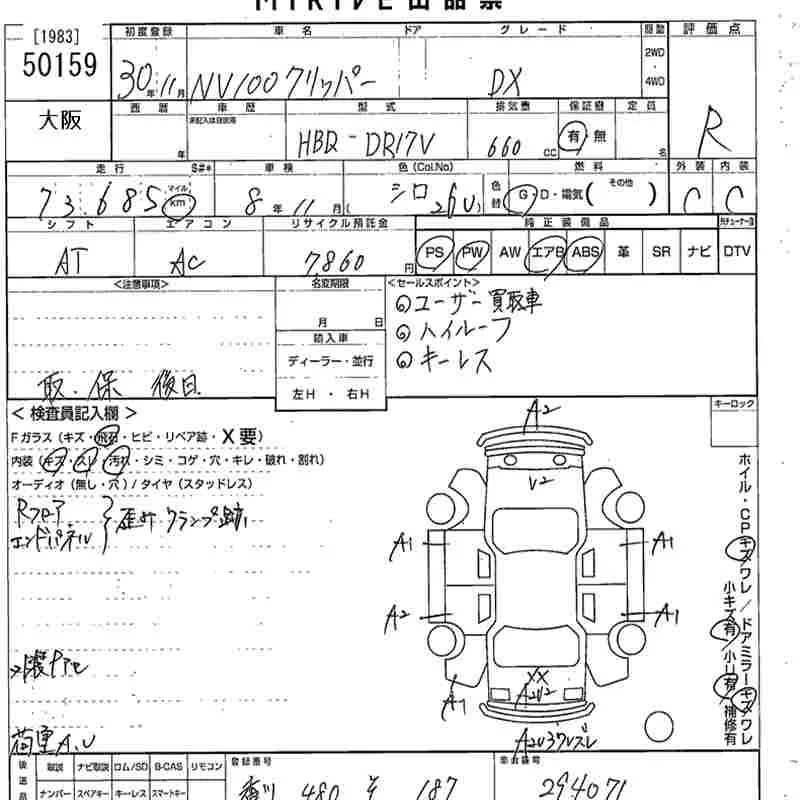 MIRIVE出品票
[1983]
50159
初度登録 車名 ドア グレード 駆動 評価点
30年11月 NV100クリッパー DX 2WD・4WD
大阪
西暦 車歴 型式 排気量 保証書 定員
未記入は自家用
年 HBD-DR17V 660cc 有・無 名 R
走行 S#* 車検 色(Col.No) 燃料 外装 内装
73,685 マイル km 8年11月( シロ 26U) 色替 G・D・電気( その他 ) C C
シフト エアコン リサイクル預託金 純正装備品
AT AC 7860円 PS PW AW エアB ABS 革 SR ナビ DTV
<注意事項> 名変期限 <セールスポイント>
月 日
◎ユーザー買取車
◎ハイルーフ
◎キーレス
輸入車
ディーラー・並行
左H・右H
取・保 後日
<検査員記入欄>
Fガラス(キズ・飛石・ヒビ・リペア跡・X要)
内装(キズ・スレ・汚れ・シミ・コゲ・穴・キレ・破れ・割れ)
オーディオ(無し・穴)/タイヤ(スタッドレス)
Rフロア
エンドパネル
歪み クランプ跡
荷室A.U
キーロック
A2
U2
A1 A1
A2 A1
XX
A2U2
A1
A2U3ワレズレ
ホイル・CPキズワレ/ドアミラーキズワレ
小キズ有/小U有/補修有
後送品 取説 ナビ取説 ロム/SD B-CAS リモコン
ナンバー スペアキー キーレス スマートキー
登録番号
香川 480 そ 187
車台番号
294071